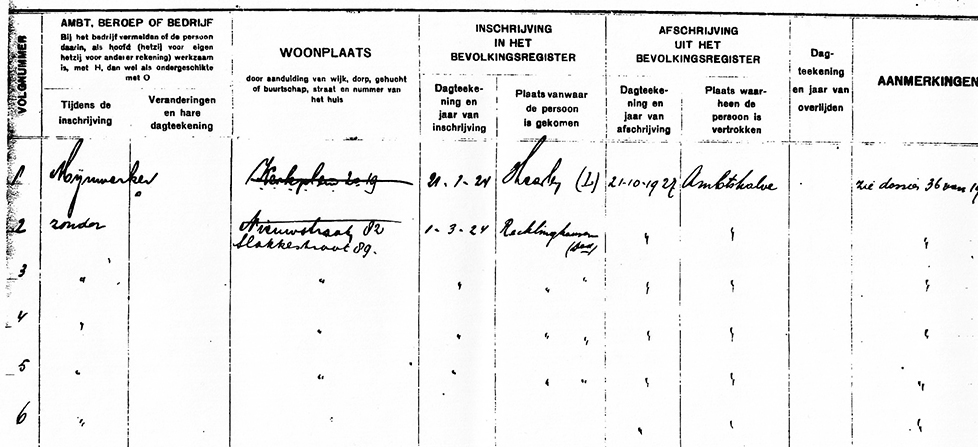 VOLGNUMMER
AMBT, BEROEP OF BEDRIJF
Bij het bedrijf vermelden of de persoon
daarin, als hoofd (hetzij voor eigen
hetzij voor anderer rekening) werkzaam
is, met H, dan wel als ondergeschikte
met O
Tijdens de
inschrijving
Veranderingen
en hare
dagteekening
WOONPLAATS
door aanduiding van wijk, dorp, gehucht
of buurtschap, straat en nummer van
het huis
INSCHRIJVING
IN HET
BEVOLKINGSREGISTER
Dagteeke-
ning en
jaar van
inschrijving
Plaats vanwaar
de persoon
is gekomen
AFSCHRIJVING
UIT HET
BEVOLKINGSREGISTER
Dagteeke-
ning en
jaar van
afschrijving
Plaats waar-
heen de
persoon is
vertrokken
Dag-
teekening
en jaar van
overlijden
AANMERKINGEN
1 Mijnwerker Kerkplein 19 21-1-24 (L) 21-10-1927 Ambtshalve zie dossier 36 van 19
2 zonder Nieuwstraat 82 1-3-24 Recklinghausen " " "
Slakkestraat 89.
3 " " " " " " " "
4 " " " " " " "
5 " " " " " " " "
6 " " " "